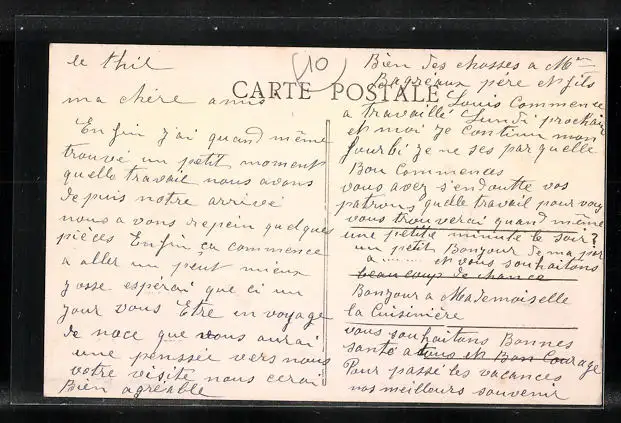 le thil
10
CARTE POSTALE
ma chère amis
Enfin j'ai quand même
trouvé un petit moment
quelle travail nous avons
depuis notre arrivée
nous avons repein quelques
pièces Enfin ça commence
a aller un peut mieux
josse espérai que ci un
jour vous Etre en voyage
de noce que vous aurai
une penssée vers nous
votre visite nous cerai
Bien agréable
Bien des chosses a Mm
Bagréaux père et fils
Louis Commence
a travaillé Lundi prochain
et moi je continu mon
fourbi je ne ses par quelle
Bou Commences
vous avez s'endoutte vos
patrons quelle travail pour vous
vous trouverai quand même
une petite minute le soir?
un petit Bonjour de ma par
a ........ et vous souhaitons
beaucoup de chance
Bonjour a Mademoiselle
la Cuisinière
vous souhaitons Bonnes
santé a tous et Bon Courage
Pour passé les vacances
nos meillours souvenir